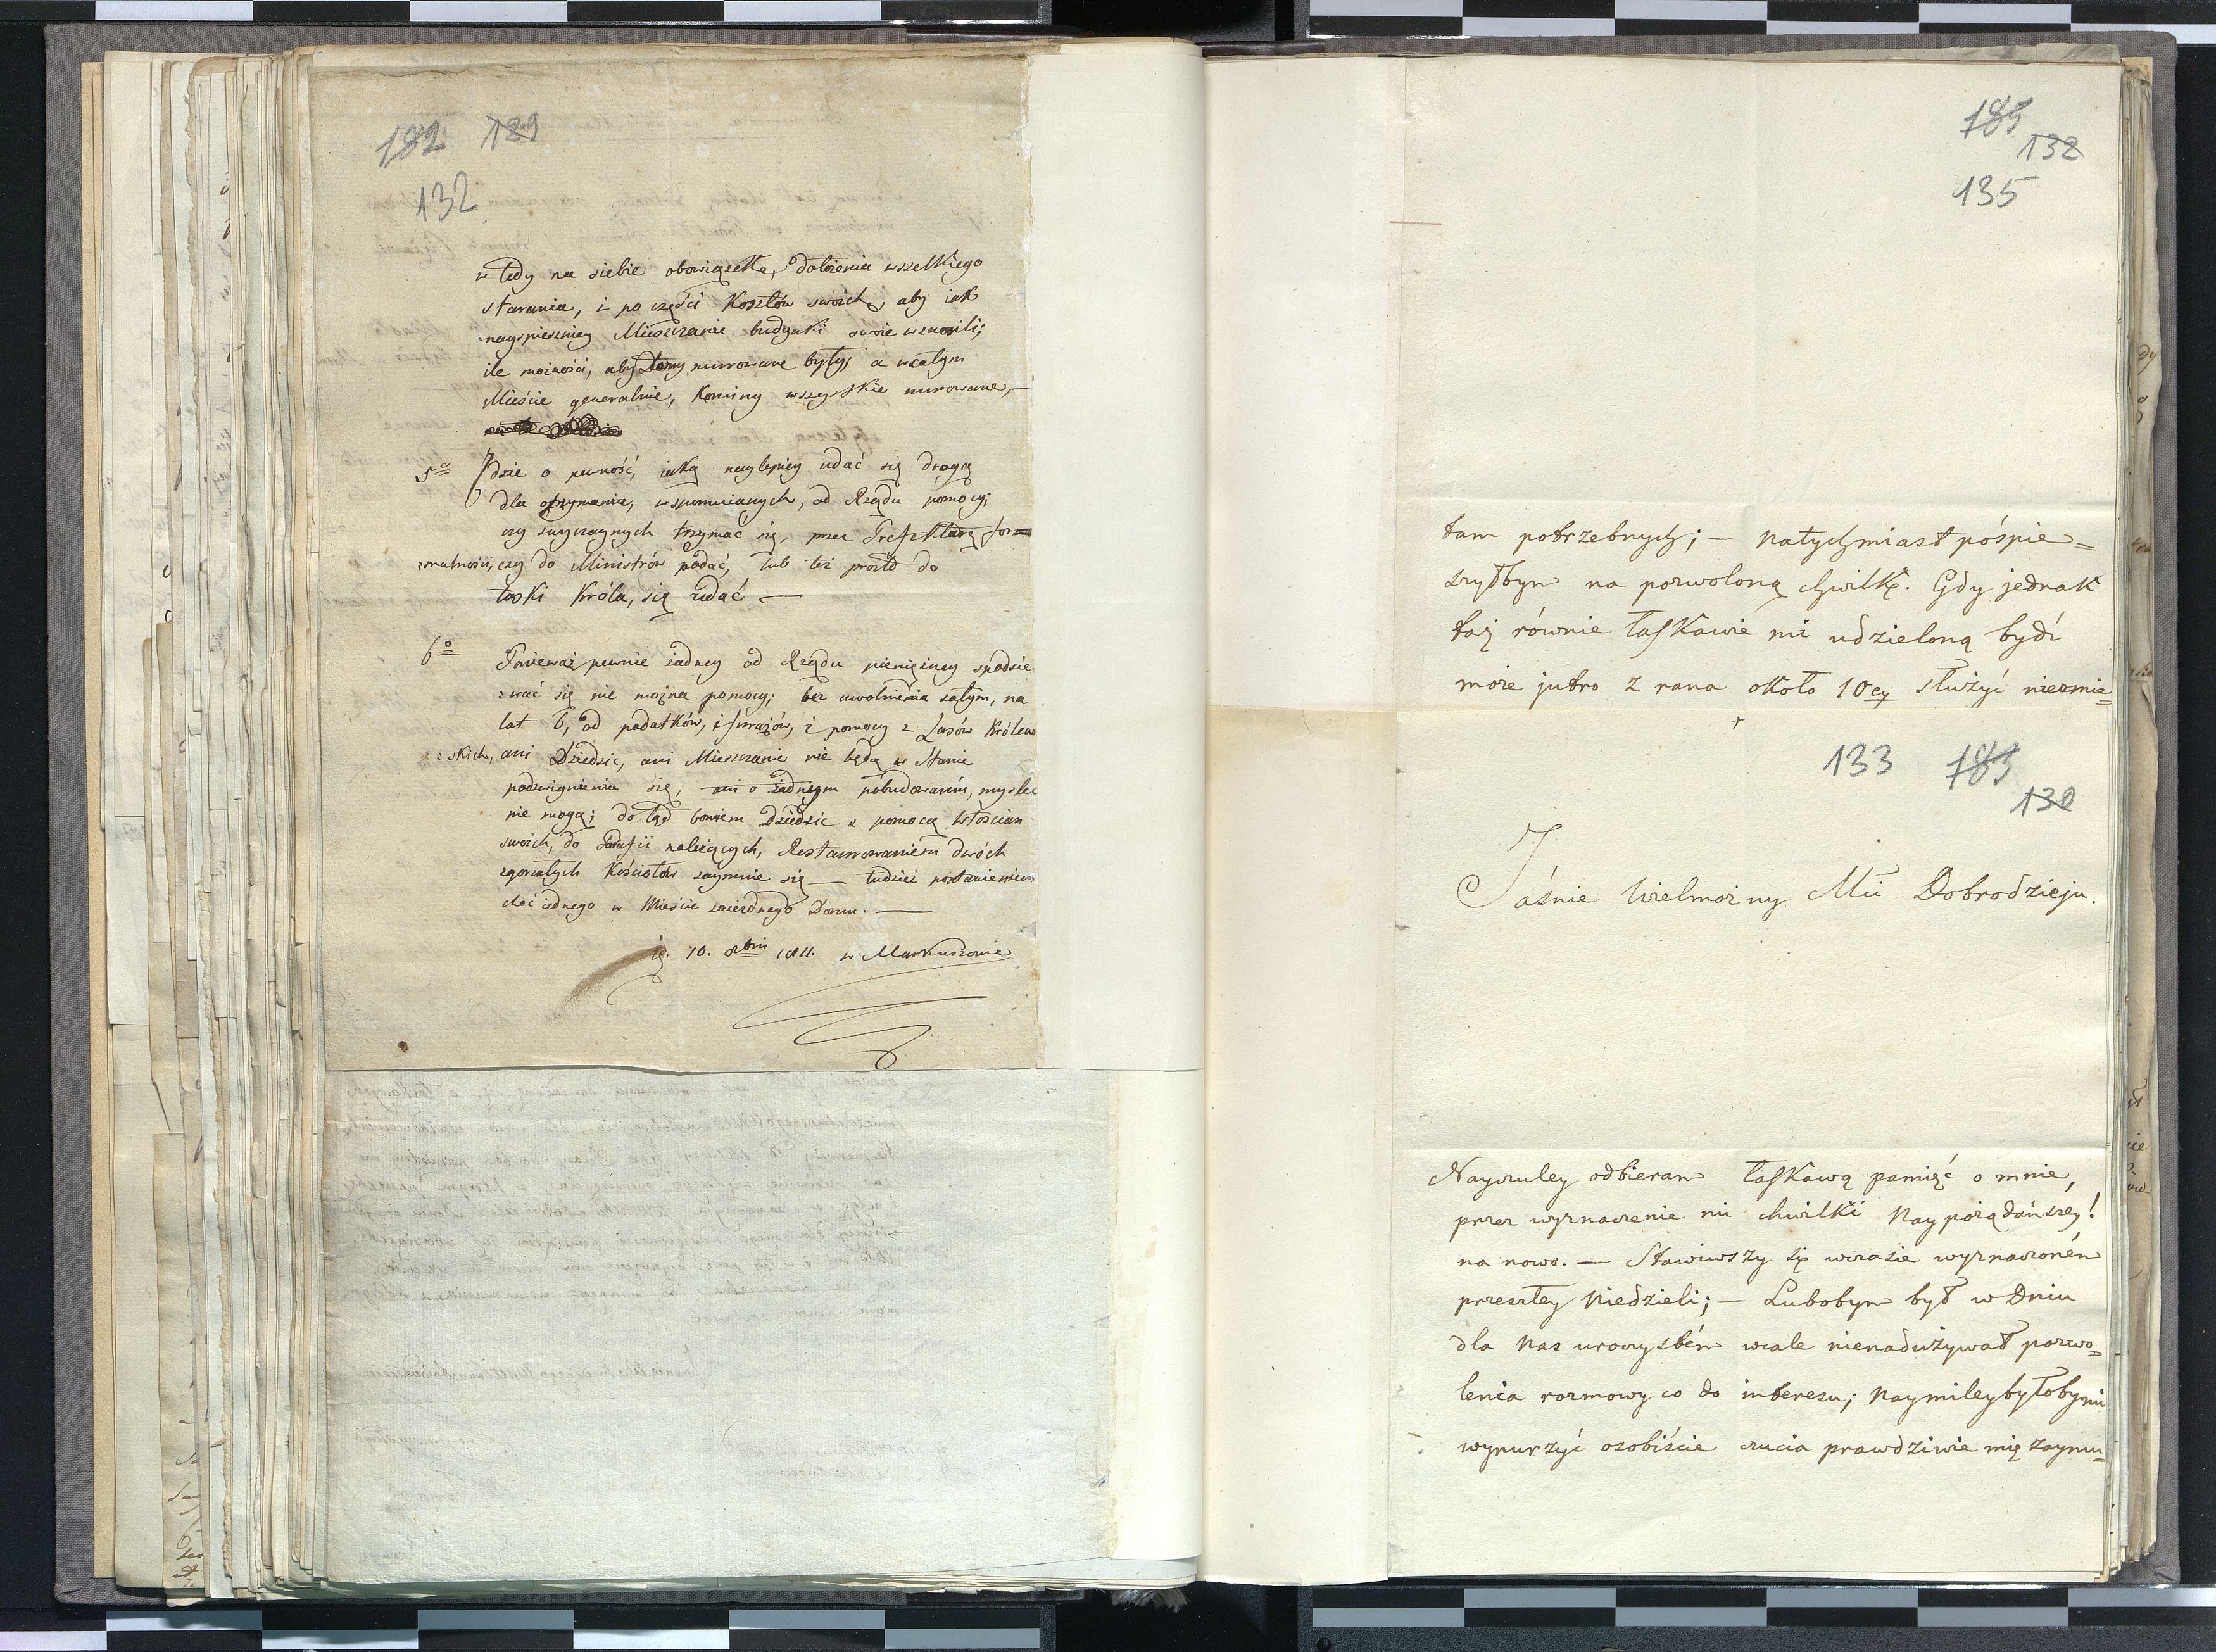 182 129
132
w tedy na siebie obowiązek, dołożenia wszelkiego
starania, i po części Kosztów swoich, aby iak
nayspieszniey Mieszczanie budynki swoie wznosili;
ile możności, aby Domy murowane były, a w całym
Mieście generalnie, Kominy wszystkie murowane,—
5o Jdzie o pewność, iaką naylepiey udać się drogą
dla otrzymania, wspomnianych, od Rządu pomocy;
czy zwyczaynych trzymać się, przez Prefekturę for=
:malności, czy do Ministrów podać, lub też prosto do
łaski Króla, się udać —
6o Ponieważ pewnie żadney od Rządu pieniężney spodzie
:wać się nie można pomocy; bez uwolnienia zatym, na
lat 6, od podatków, i forażów, i pomocy z Lasów Królew
::skich, ani Dziedzic, ani Mieszczanie nie będą w Stanie
podzwignienia się; ani o żadnym pobudowaniu, myslec
nie mogą; do tąd bowiem Dziedzic z pomocą Włościan
swoich, do Parafii należących, Restaurowaniem dwóch
zgorzałych Kościołów zaymuie się — tudzież postawieniem
choć iednego w Mieście zaiezdnego Domu. —
d. 10. 8bris 1811. w Markuszowie
189
132
135
tam potrzebnych; — Natychmiast pośpie=
szyłbym na pozwoloną chwilkę. Gdy jednak
taż równie łaskawie mi udzieloną bydź
może jutro z rana około 10ey służyć niezmie=
133 183
130
Jaśnie Wielmożny Mci Dobrodzieju.
Nayczuley odbieram łaskawą pamięć o mnie,
przez wyznaczenie mi chwilki Naypożądańszey!
na nowo. — Stawiwszy się wczasie wyznaczoném
przeszłey Niedzieli; — Lubobym był w Dniu
dla Nas uroczystém wcale nienadużywał pozwo=
lenia rozmowy co do interesu; Naymiley byłoby mi
wynurzyć osobiście czucia prawdziwie mię zaymu=